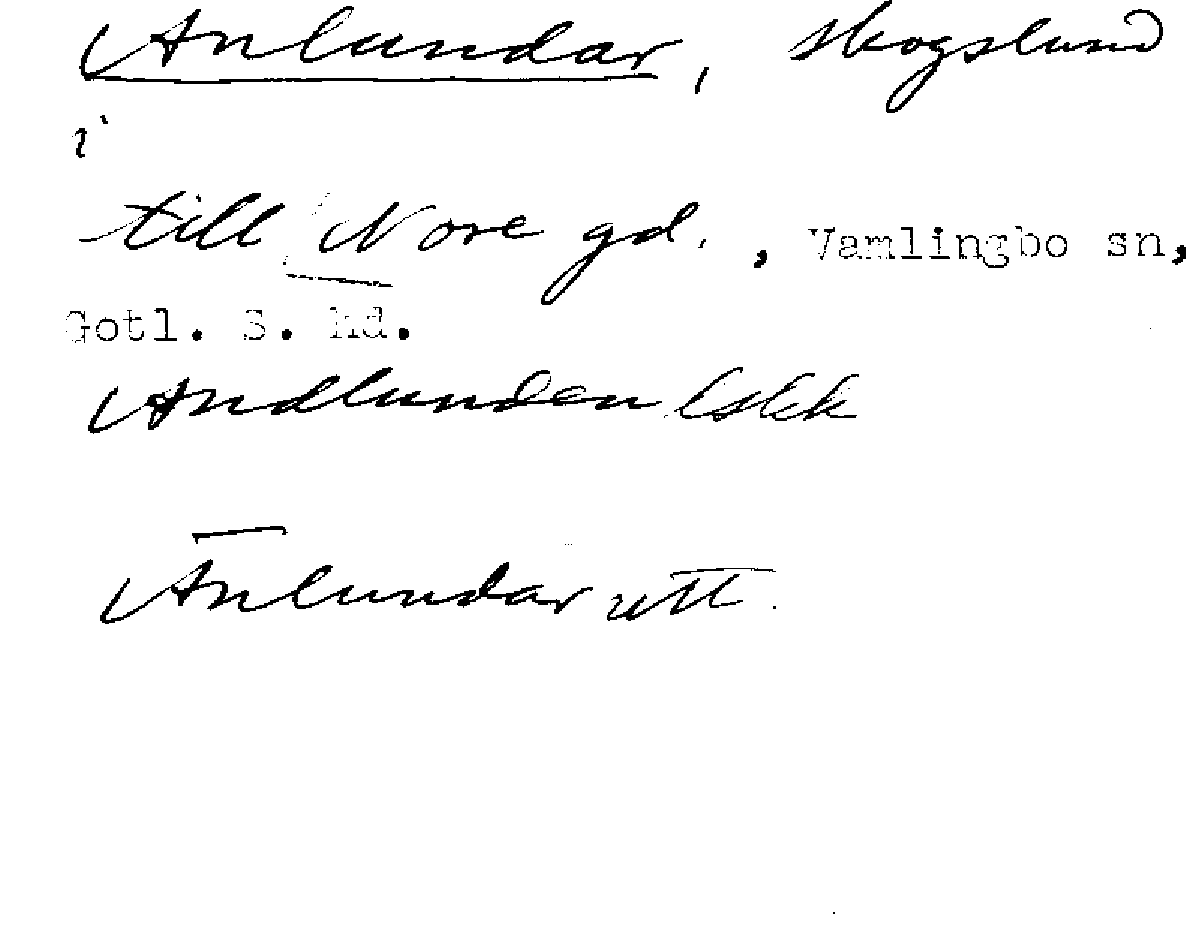 Anlundar, skogslund
i
till Nore gd. , Vamlingbo sn,
Gotl. S. hd.
Andlunden lskk
Anlundar utt.